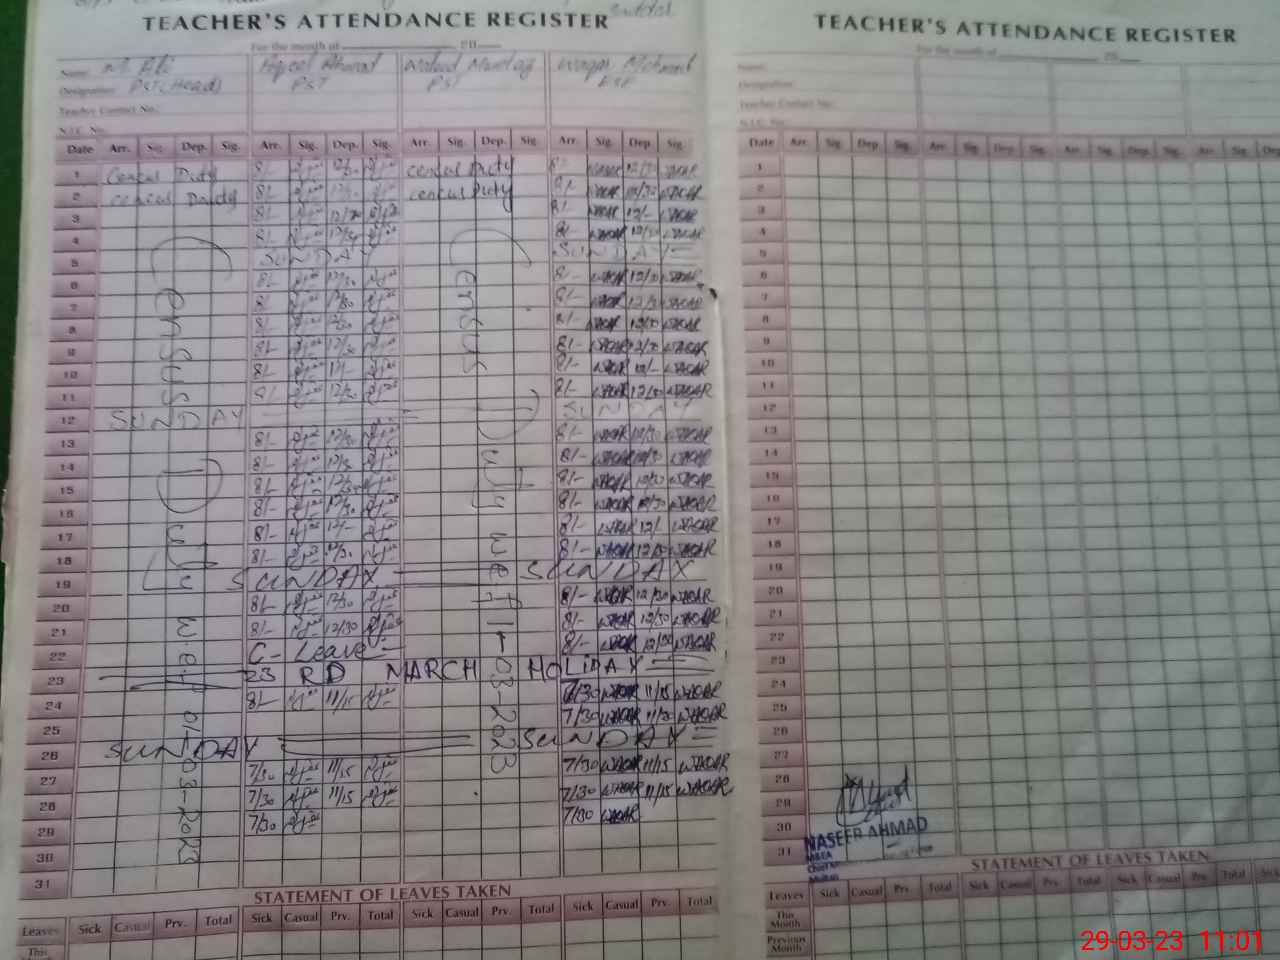 TEACHER'S ATTENDANCE REGISTER
For the month of 20
Name: M. Ali Aqeel Ahmad Waheed Mumtaz Waqar
Designation: PST(Head) PST PST ESE
Teacher Contact No.:
N.I.C. No.
Date Arr. Sig. Dep. Sig. Arr. Sig. Dep. Sig. Arr. Sig. Dep. Sig. Arr. Sig. Dep. Sig.
1 Cencus Duty 8/- 12/30 cencus Duty 8/- WAQAR 12/30 WAQAR
2 cencus Douty 8/- 12/30 cencus Duty 8/- WAQAR 12/30 WAQAR
3 8/- 12/30 8/- WAQAR 12/- WAQAR
4 8/- 12/30 8/- WAQAR 12/30 WAQAR
5 SUNDAY SUNDAY
6 8/- 12/30 8/- WAQAR 12/30 WAQAR
7 8/- 12/30 8/- WAQAR 12/30 WAQAR
8 8/- 12/30 8/- WAQAR 12/30 WAQAR
9 8/- 12/30 8/- WAQAR 12/30 WAQAR
10 8/- 12/- 8/- WAQAR 12/- WAQAR
11 8/- 12/30 8/- WAQAR 12/30 WAQAR
12 SUNDAY SUNDAY
13 8/- 12/30 8/- WAQAR 12/30 WAQAR
14 8/- 12/30 8/- WAQAR 12/30 WAQAR
15 8/- 12/30 8/- WAQAR 12/30 WAQAR
16 8/- 12/30 8/- WAQAR 12/30 WAQAR
17 8/- 12/- 8/- WAQAR 12/- WAQAR
18 8/- 12/30 8/- WAQAR 12/30 WAQAR
19 SUNDAY SUNDAY
20 8/- 12/30 8/- WAQAR 12/30 WAQAR
21 8/- 12/30 8/- WAQAR 12/30 WAQAR
22 C-Leave 8/- WAQAR 12/30 WAQAR
23 23 RD MARCH HOLIDAY
24 8/- 11/15 7/30 WAQAR 11/15 WAQAR
25 7/30 WAQAR 11/30 WAQAR
26 SUNDAY SUNDAY
27 7/30 11/15 7/30 WAQAR 11/15 WAQAR
28 7/30 11/15 7/30 WAQAR 11/15 WAQAR
29 7/30 7/30 WAQAR
30
31
Census Duty w.e.f 01-03-2023
Census Duty w.e.f 1-03-2023
STATEMENT OF LEAVES TAKEN
Leaves Sick Casual Prv. Total Sick Casual Prv. Total Sick Casual Prv. Total Sick Casual Prv. Total
This
TEACHER'S ATTENDANCE REGISTER
For the month of 20
Name:
Designation:
Teacher Contact No.:
N.I.C. No.
Date Arr. Sig. Dep. Sig. Arr. Sig. Dep. Sig. Arr. Sig. Dep. Sig. Arr. Sig. Dep.
1
2
3
4
5
6
7
8
9
10
11
12
13
14
15
16
17
18
19
20
21
22
23
24
25
26
27
28
29
30
31
NASEER AHMAD
MEA
STATEMENT OF LEAVES TAKEN
Leaves Sick Casual Prv. Total Sick Casual Prv. Total Sick Casual Prv. Total Sick
This Month
Previous Month
29-03-23 11:01